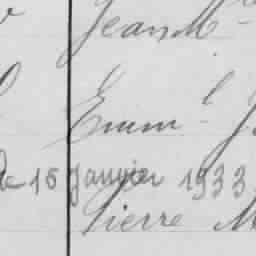 Jean M
Emm^l J
de 16 Janvier 1933
Pierre M